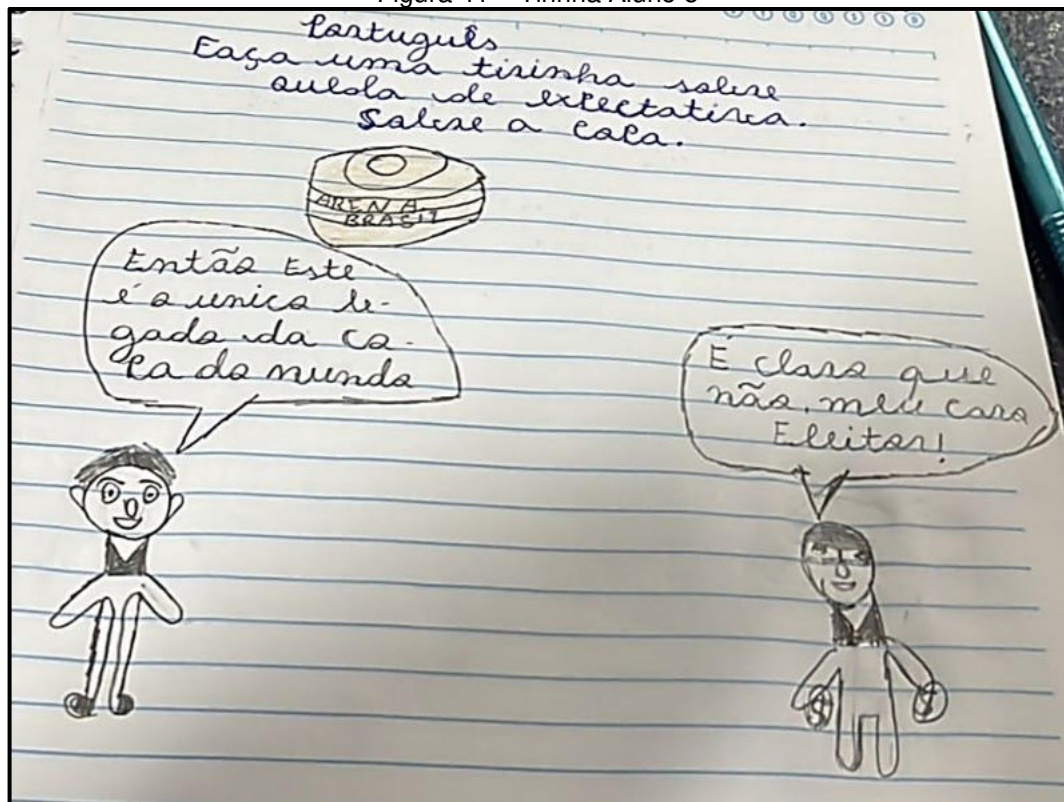 Tirinha Aluno
Português
Faça uma tirinha sobre
de expectativa.
Sobre a copa.
ARENA
BRASIL
Então Este
é o unico le-
gado da co-
pa do mundo
E claro que
não, meu caro
Eleitor!